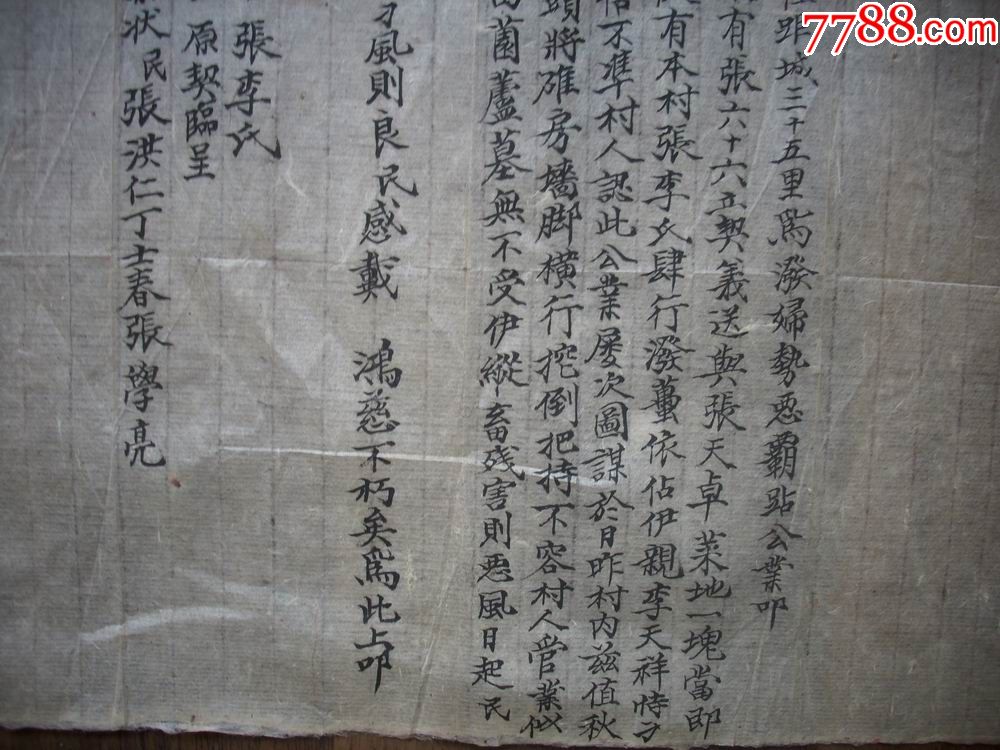 7788.com
距城三十五里為潑婦勢惡霸跕公業叩
有張六十六立契義送與張天卓菜地一塊當即
有本村張李氏肆行潑蠆依佔伊親李天祥恃刁
不準村人認此公業屡次圖謀於日昨村內茲值秋
頭將碓房墻脚橫行挖倒把持不容村人管業似
菌蘆墓無不受伊縱畜残害則惡風日起民
刁風則良民感戴 鴻慈不朽矣為此上叩
張李氏
原契臨呈
状民張洪仁丁士春張學亮